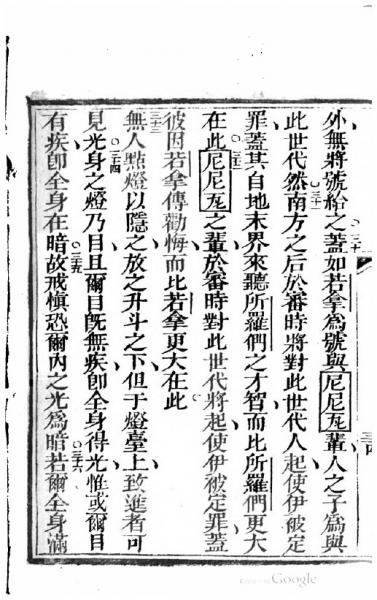 外無將號給之蓋如若拿爲號與尼尼瓦輩人之子爲與
三十
此世代然南方之后於審時將對此世代人起使伊被定
三十一
罪蓋其自地末界來聽所羅們之才智而比所羅們更大
在此尼尼瓦之輩於審時對此世代將起使伊被定罪蓋
三十二
彼因若拿傳勸悔而比若拿更大在此
三十三
無人點燈以隱之放之升斗之下但于燈臺上致進者可
三十四
見光身之燈乃目且爾目旣無疾卽全身得光惟或爾目
有疾卽全身在暗故戒愼恐爾內之光爲暗若爾全身滿
三十五
三十六
Google